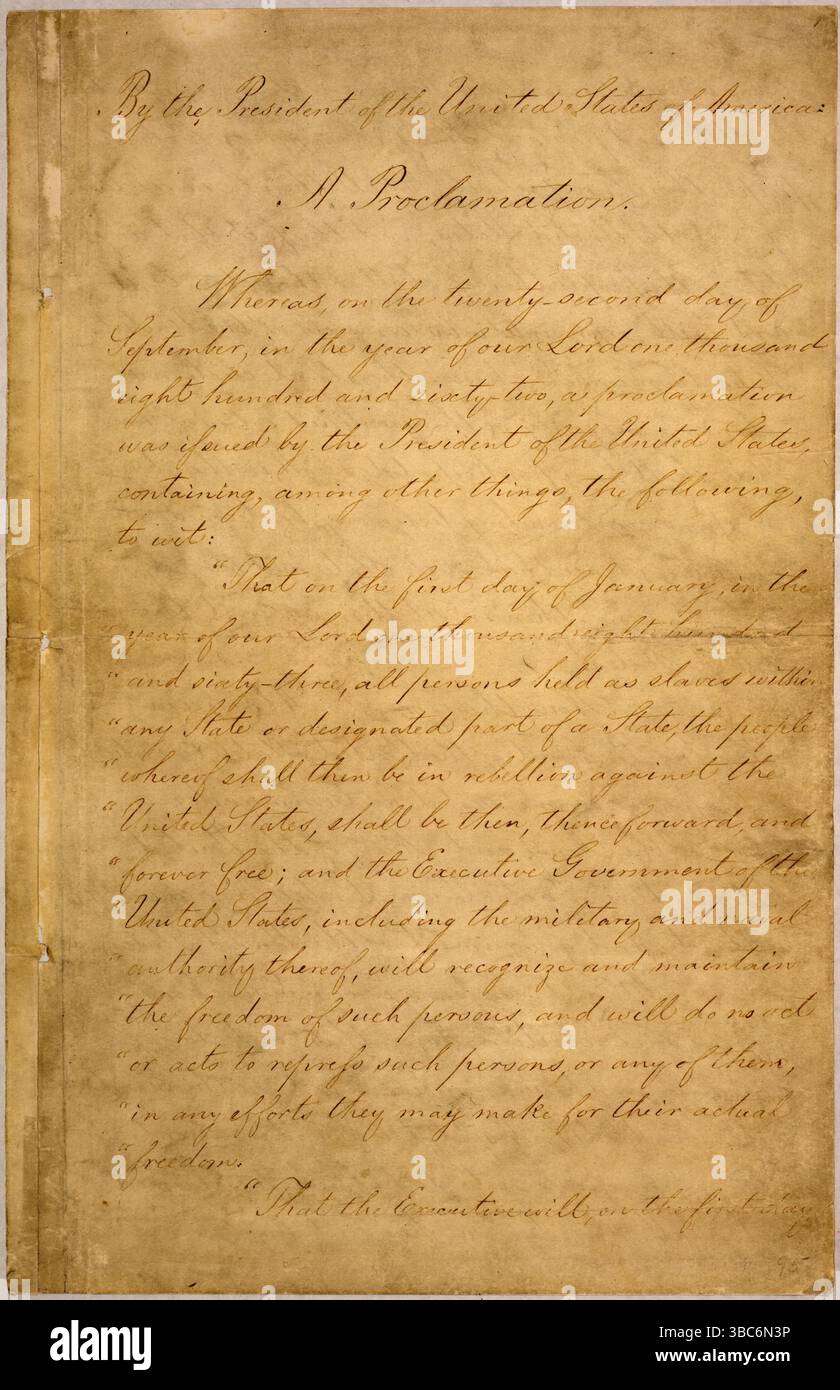 By the President of the United States of America:
A Proclamation.
Whereas, on the twenty-second day of
September, in the year of our Lord one thousand
eight hundred and sixty-two, a proclamation
was issued by the President of the United States,
containing, among other things, the following,
to wit:
"That on the first day of January, in the
"year of our Lord one thousand eight hundred
"and sixty-three, all persons held as slaves within
"any State or designated part of a State, the people
"whereof shall then be in rebellion against the
"United States, shall be then, thenceforward, and
"forever free; and the Executive Government of the
"United States, including the military and naval
"authority thereof, will recognize and maintain
"the freedom of such persons, and will do no act
"or acts to repress such persons, or any of them,
"in any efforts they may make for their actual
"freedom.
"That the Executive will, on the first day
95
alamy
Image ID: 3BC6N3P
www.alamy.com